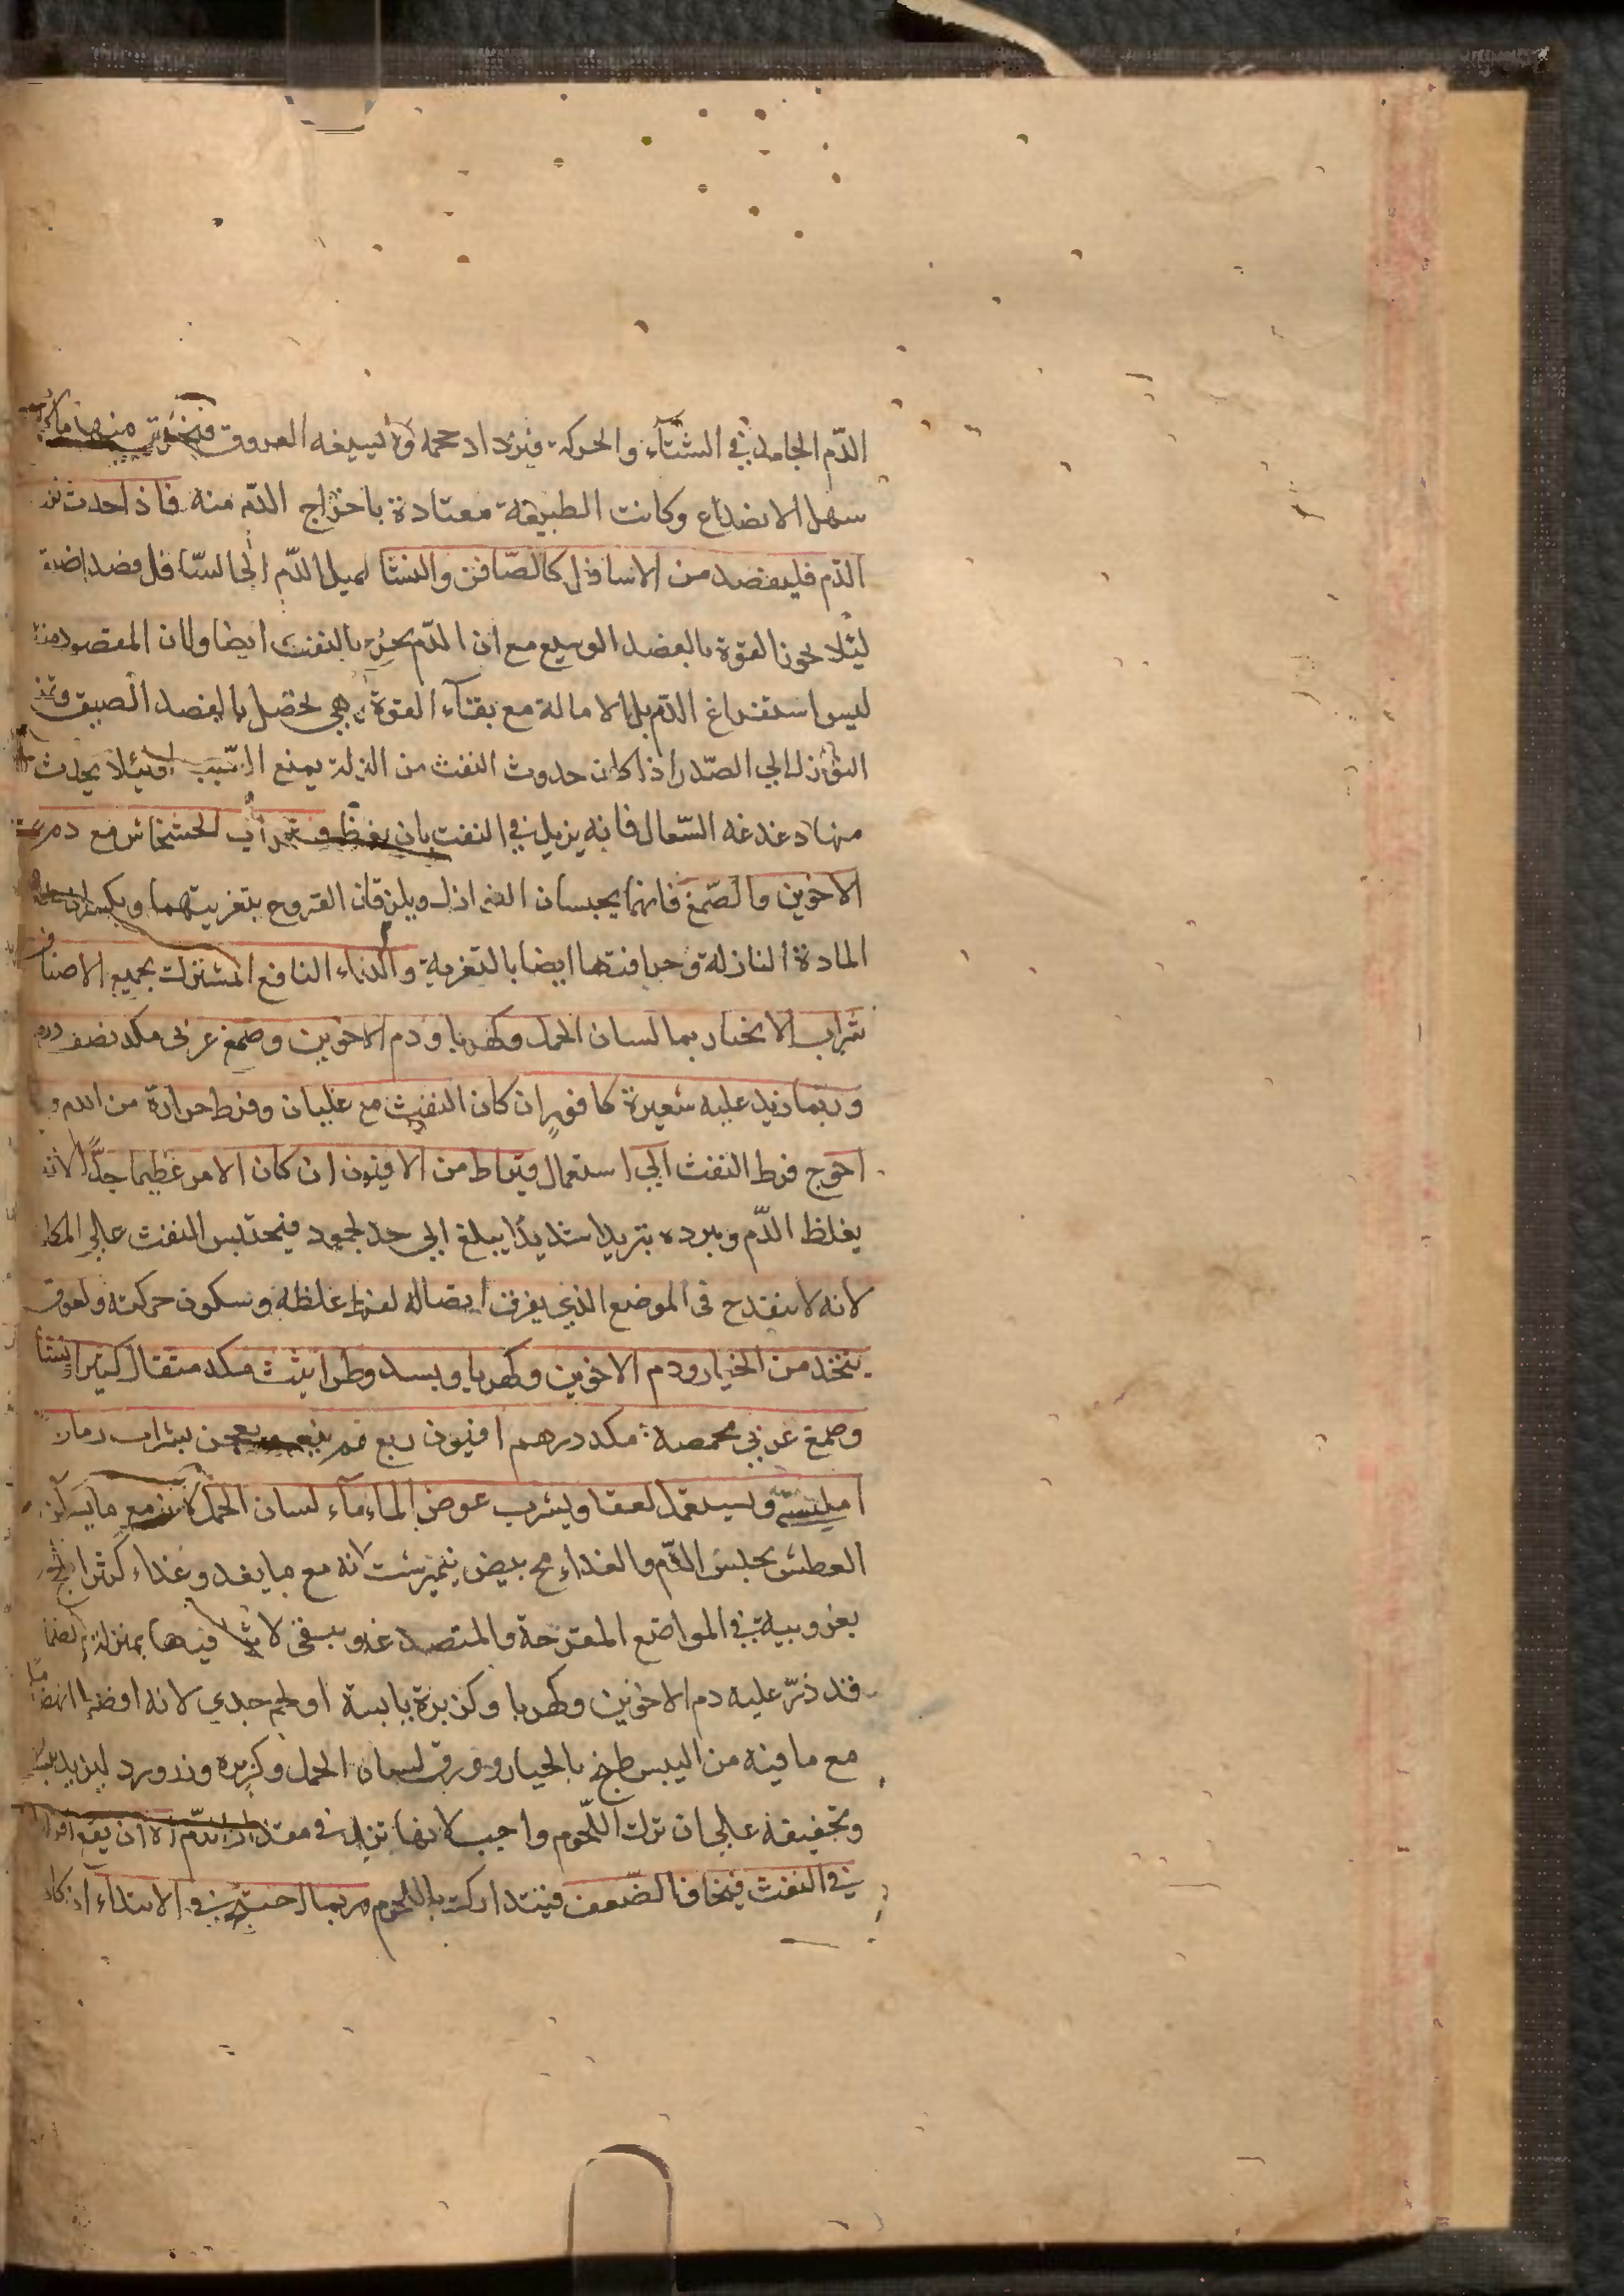 الدّم الجامد في الشتآء والحركة فيزداد حجمه ولا تسيغه العروق فتخرق منها ما كان
سهل الانصداع وكانت الطبيعة معتادة باخراج الدّم منه فاذا حدث نزف
الدّم فليفصد من الاسافل كالصّافن والنسَّا لميل الدّم الى السّافل فصدا ضيقا
لئلا تخور القوة بالفصد الوسيع مع ان الدّم يخرج بالنفث ايضا ولان المقصود منه
ليس استفراغ الدّم بل الامالة مع بقآء القوة وهي تحصل بالفصد الضيق وتمنع
النوازل الي الصّدر اذا كان حدوث النفث من النزلة يمنع السّبب ولئلا يحدث
منها دغدغة السّعال فانه يزيد في النفث بان يغلظ شراب الخشخاش مع دم
الاخوين والصّمغ فانهما يحبسان النوازل ويلزقان القروح بتغريتهما ويكسران حدّة
المادة النازلة وحرافتها ايضا بالتغرية والدواء النافع المشترك بجميع الاصناف
شراب الانجبار بماء لسان الحمل وكهربا ودم الاخوين وصمغ عربى مكد نصف درهم
وربما زيد عليه شعيرة كافور ان كان النفث مع غليان وفرط حرارة من الدم وربما
احوج فرط النفث الي استعمال قيراط من الافيون ان كان الامر عظيما جدًّا لانه
يغلظ الدّم ويبرده تبريدا شديدًا يبلغ الي حد الجمود فيحتبس النفث علي المكان
لانه لا ينفدح في الموضع الذي يفرق اتصاله لفرط غلظه وسكون حركته ولعوق
يتخذ من الخيار ودم الاخوين وكهربا وبسد وطراثيث مكد مثقال كثيرا ونشا
وصمغ عربي محمصة مكد درهم افيون ربع درهم يعجن بشراب رمان
امليسي ويستعمل لعقا ويشرب عوض الماء مآء لسان الحمل لانه مع ما يسكن
العطش يحبس الدّم والغذاء مح بيض نيمبرشت لانه مع ما يغذو غذاء كثيرا
بغروييته في المواضع المتقرحة والمتصدعة ويبقى لابثا فيها بمنزلة الضماد
قد ذرّ عليه دم الاخوين وكهربا وكزبرة يابسة او لحم جدي لانه اقل انهضاما
مع ما فيه من اليبس طبخ بالخيار وورق لسان الحمل وكزبره وزر ورد ليزيد يبسه
وتجفيفه علي ان ترك اللّحوم واجب لانها تزيد في مقدار الدّم الا ان يقع افراط
في النفث فيخاف الضّعف فيتدارك باللّحوم وربما احتيج في الابتدآء اذا كان